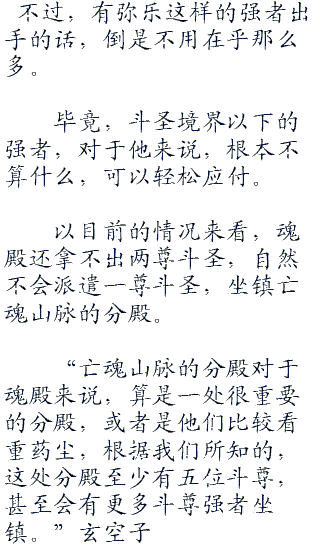 不过，有弥乐这样的强者出
手的话，倒是不用在乎那么
多。
毕竟，斗圣境界以下的
强者，对于他来说，根本不
算什么，可以轻松应付。
以目前的情况来看，魂
殿还拿不出两尊斗圣，自然
不会派遣一尊斗圣，坐镇亡
魂山脉的分殿。
“亡魂山脉的分殿对于
魂殿来说，算是一处很重要
的分殿，或者是他们比较看
重药尘，根据我们所知的，
这处分殿至少有五位斗尊，
甚至会有更多斗尊强者坐
镇。”玄空子